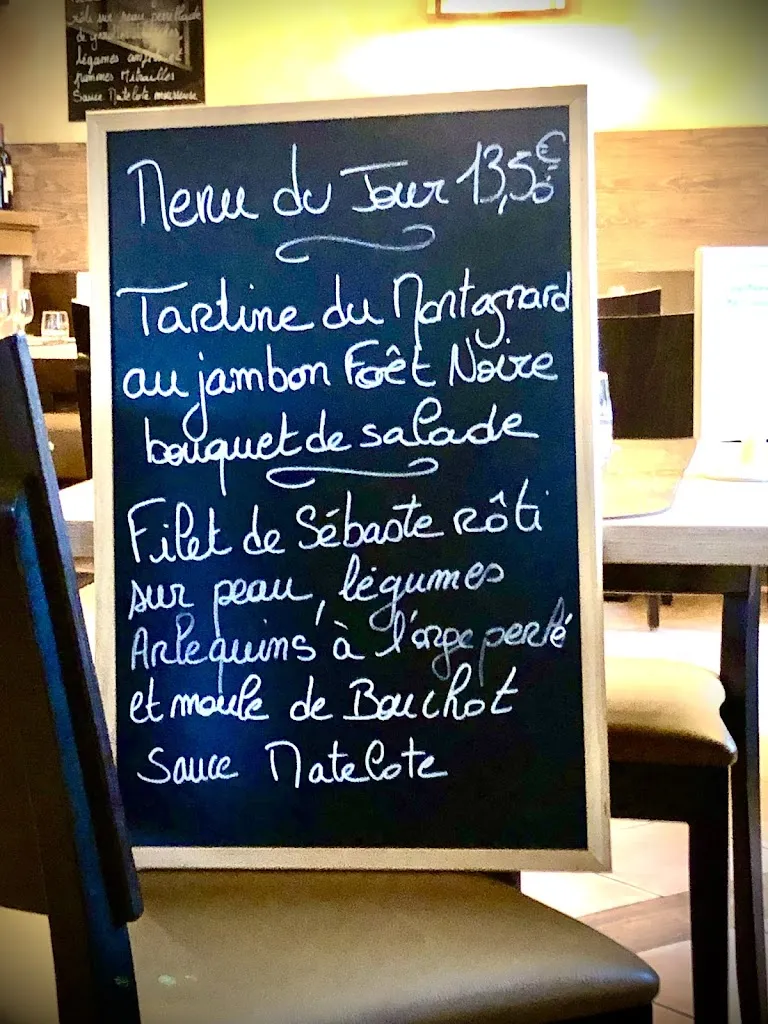 rôti sur peau
légumes
pommes
Sauce Matelote
Menu du Jour 13,50€
Tartine du Montagnard
au jambon Forêt Noire
bouquet de salade
Filet de Sébaste rôti
sur peau, légumes
Arlequins à l'orge perlé
et moule de Bouchot
Sauce Matelote